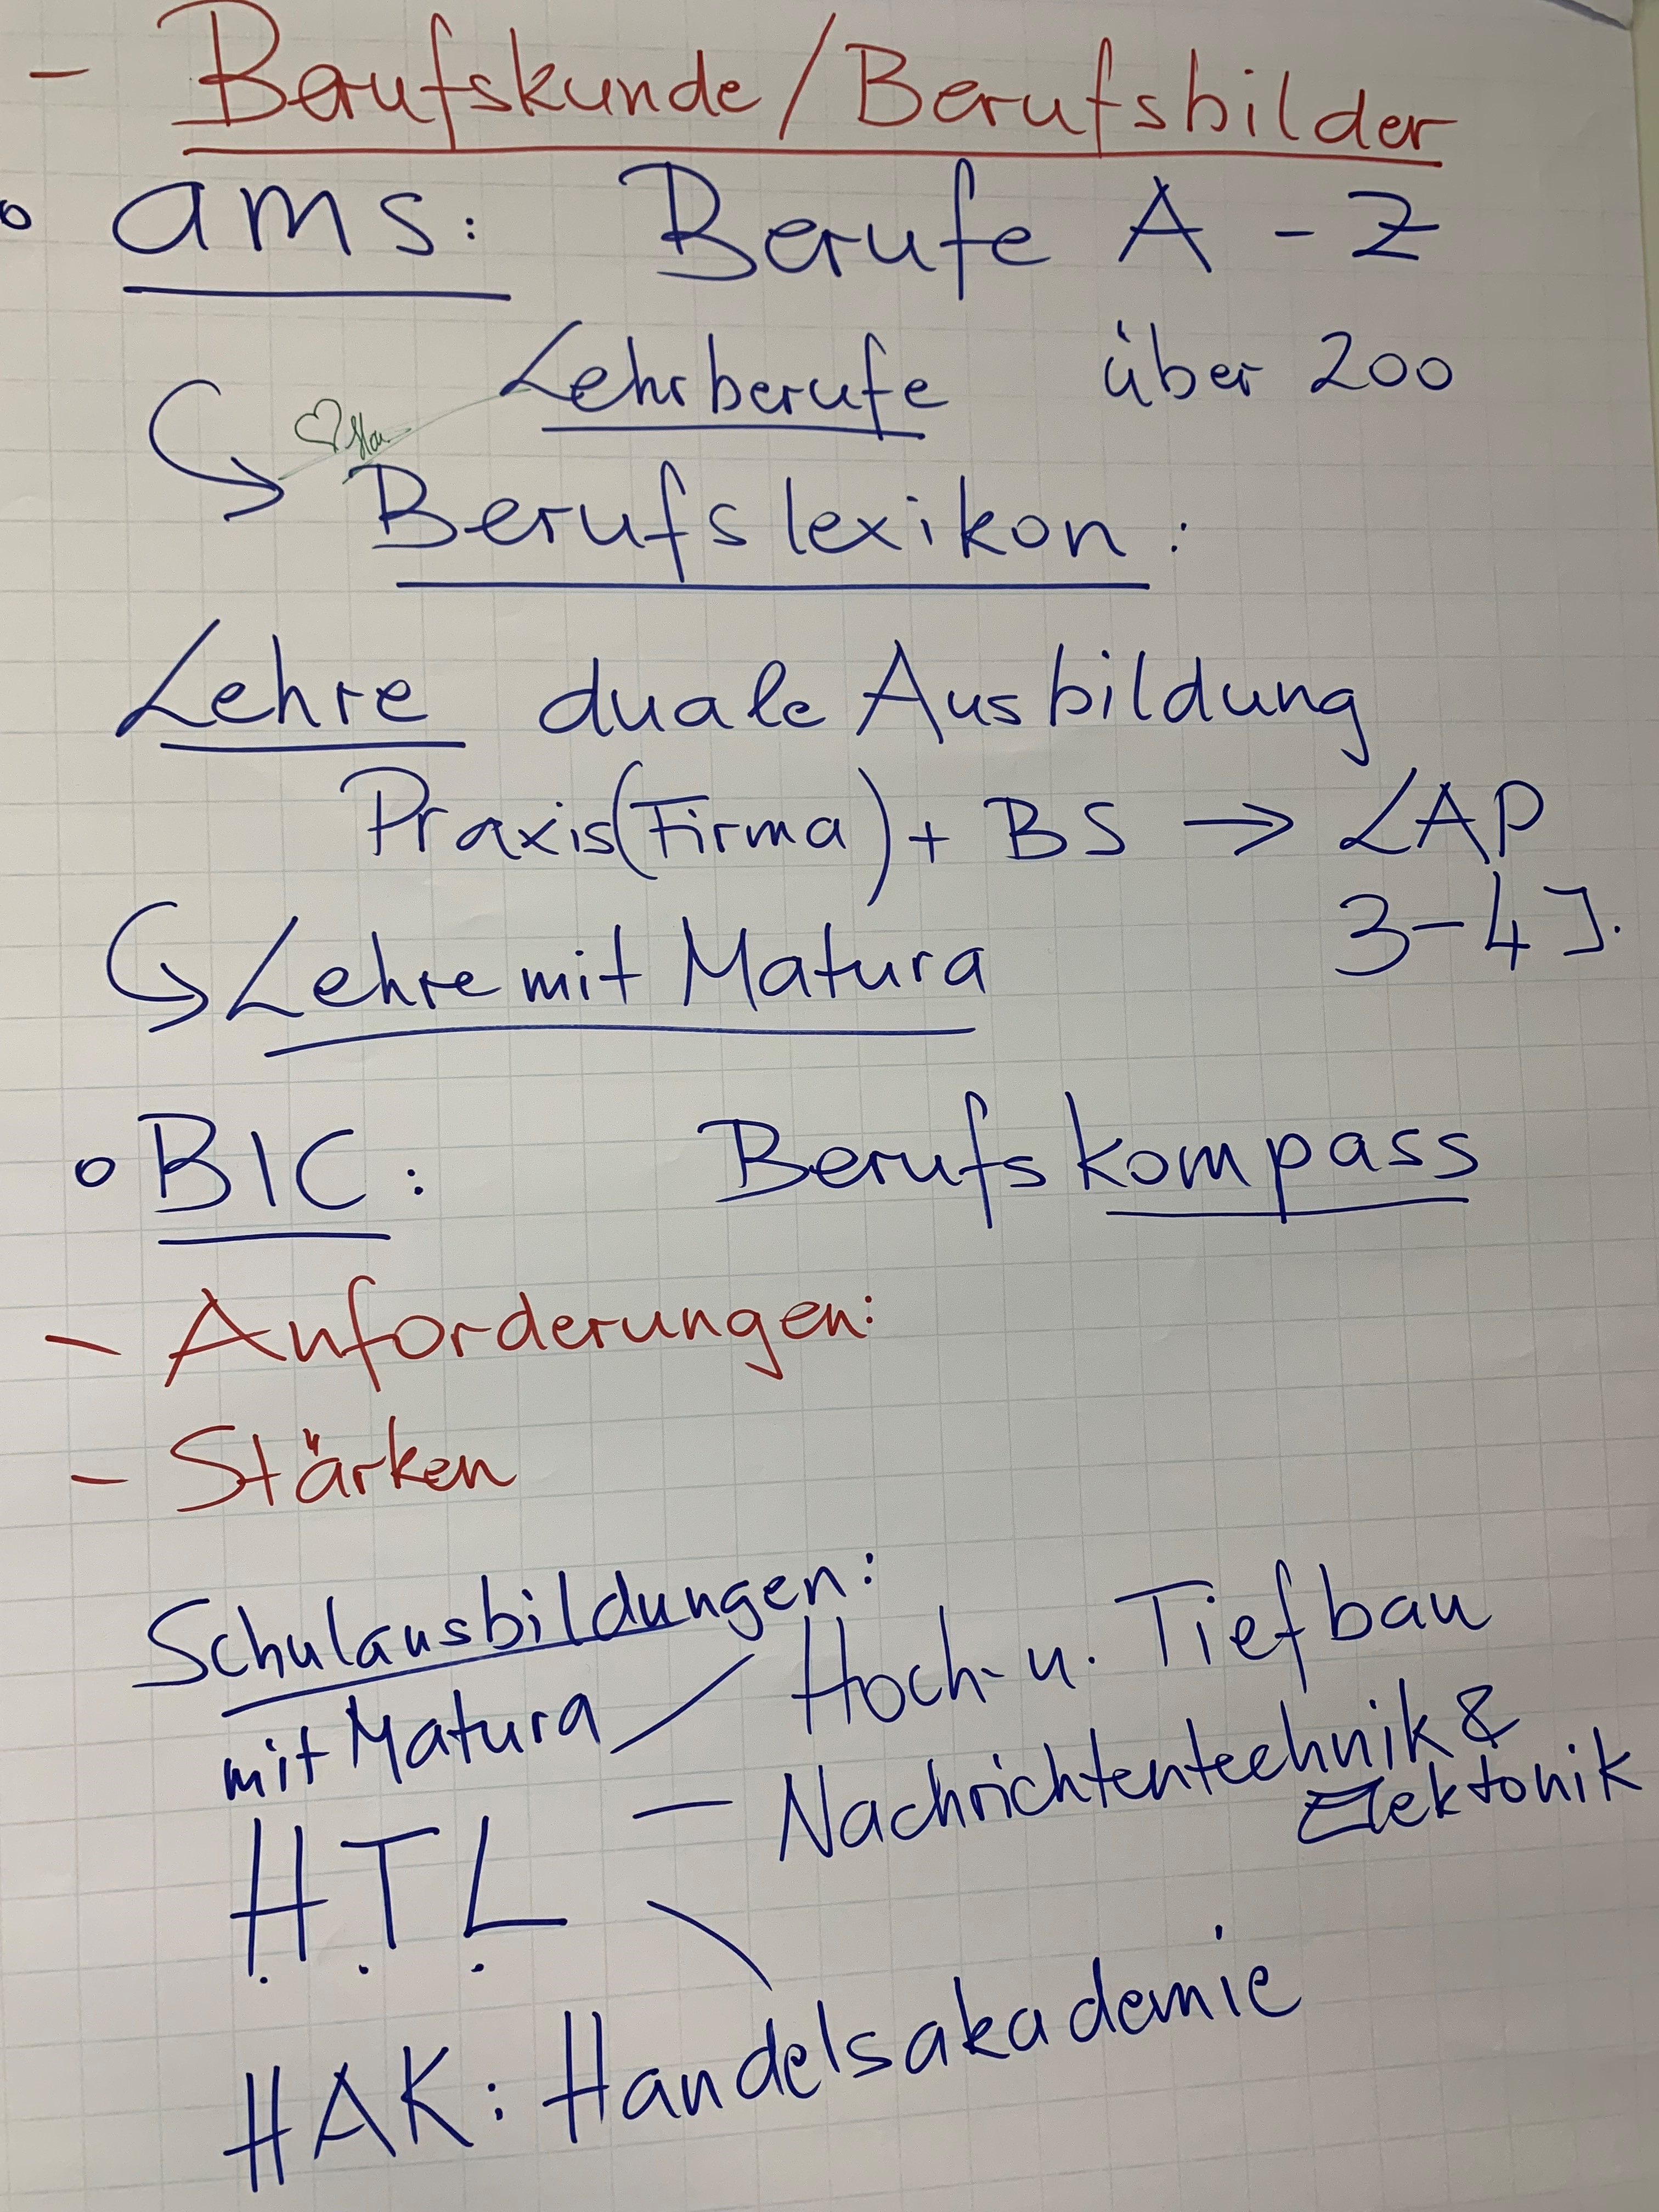 - Berufskunde/Berufsbilder
o ams: Berufe A - Z
Lehrberufe über 200
Berufslexikon:
Lehre duale Ausbildung
Praxis(Firma) + BS → LAP
3-4 J.
Lehre mit Matura
o BIC: Berufskompass
- Anforderungen:
- Stärken
Schulausbildungen:
mit Matura
Hoch- u. Tiefbau
Nachrichtentechnik &
Elektonik
HTL
HAK: Handelsakademie